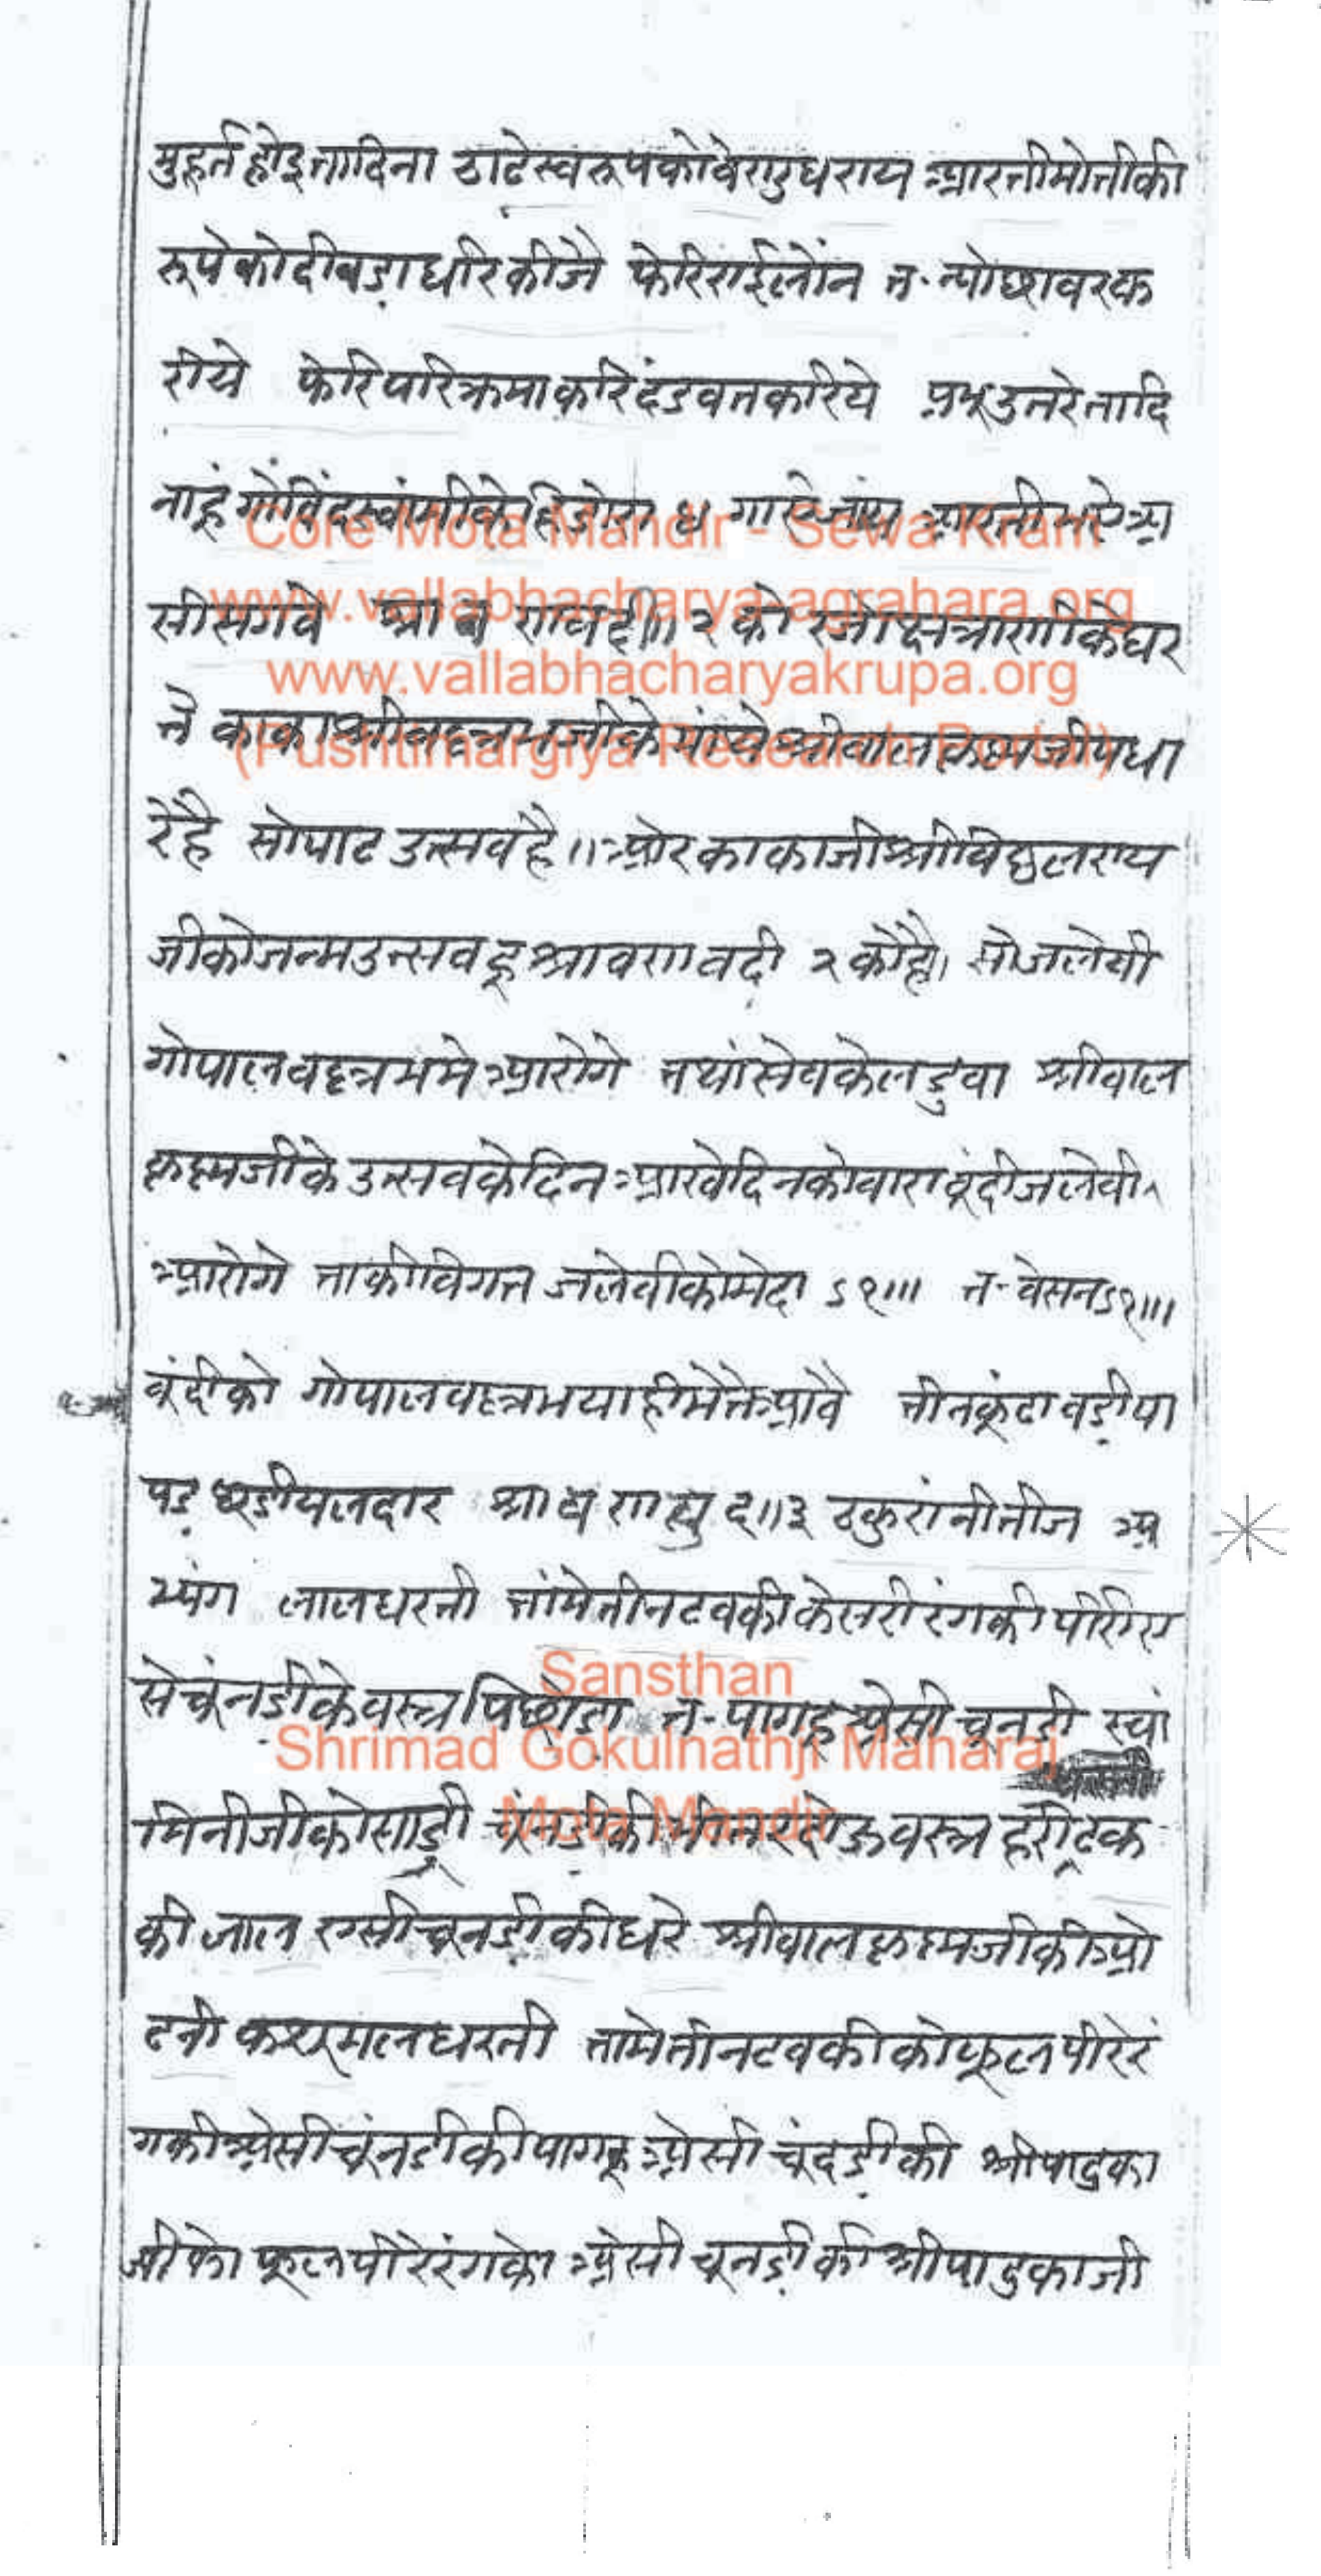 मुहूर्त होइ तादिना ठाढे स्वरूप को वेणु धराय आरती मोती की
रूपे को दीवडा धरि कीजै फेरि राई लोंन त. न्योछावर क
रीये फेरि परिक्रमा करि दंडवत करिये प्रभु उतरे तादि
नाहूं गोविंदस्वांमी के हिंडोरा ४ गाये जांय आरती भऐ आ
सीस गवे श्रावण वदी॥ २ को क्षत्राणी के घर
ते काका श्रीवल्लभजी के श्रीबालकृष्णजी पधा
रे है सो पाट उत्सव है॥ ओर काकाजी श्रीविठ्ठलराय
जी को जन्म उत्सव हू श्रावण वदी २ को है। सो जलेबी
गोपालवल्लभ मे आरोगे तथां सेव के लडुवा श्रीबाल
कृष्णजी के उत्सव के दिन आखे दिन को वारा बूंदी जलेबी
आरोगे ताकी विगत जलेबी को मेदा ऽ१॥। त. वेसन ऽ१॥।
बूंदी को गोपालवल्लभ याही मे ते आवै तीनकूंटा वडी पा
पड भुजेंना दार श्रावण सुद॥३ ठकुरांनी तीज अ
भ्यंग लाल धरती तांमे तीन टवकी केसरी रंग की पीरी ए
से चूंनडी के वस्त्र पिछोडा त. पाग हू ऐसी चूनडी स्वां
मिनीजी को साडी चूंनडी की वस्त्र हरी टक
की लाल एसी चूनडी की धरे श्रीबालकृष्णजी की ओ
ढनी कसूमल धरती तामे तीन टवकी को फूल पीरे रं
ग की ऐसी चूंनडी की पाग हू ऐसी चूंदडी की श्रीपादुका
जी को फूल पीरे रंग के ऐसी चूनडी की श्रीपादुकाजी
Core Mota Mandir - Sewa Kram
www.vallabhacharya-agrahara.org
www.vallabhacharyakrupa.org
(Pushtimargiya Research Portal)
Sansthan
Shrimad Gokulnathji Maharaj
Mota Mandir